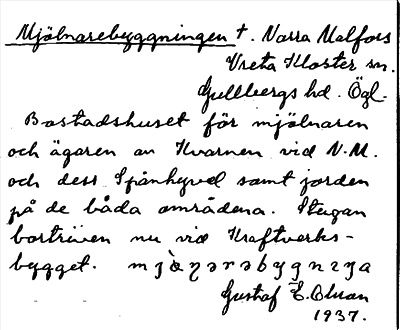 Mjölnarebyggningen †. Norra Malfors
Vreta Kloster sn.
Gullbergs hd. Ögl.
Bostadshuset för mjölnaren
och ägaren av Kvarnen vid N.M.
och dess Spånhyvel samt jorden
på de båda områdena. Stugan
bortriven nu vid Kraftverks-
bygget.
Gustaf E. Olsson
1937.